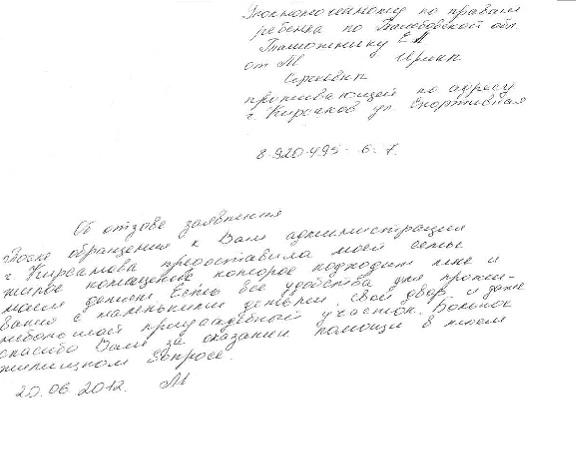 Уполномоченному по правам
ребенка по Тамбовской обл.
Таможнику Е.Л
от М Ирин
Сергеевн
проживающей по адресу
г. Кирсанов ул. Спортивная
8-920-495- 6- 7.
Об отзове заявления
После обращения к Вам администрация
г. Кирсанова предоставила моей семье
жилое помещение которое подходит мне и
моим детям. Есть все удобства для прожи-
вания с маленькими детьми, свой двор и даже
небольшой приусадебный участок. Большое
спасибо Вам за оказании помощи в моем
жилищном вопросе.
20.06.2012. М